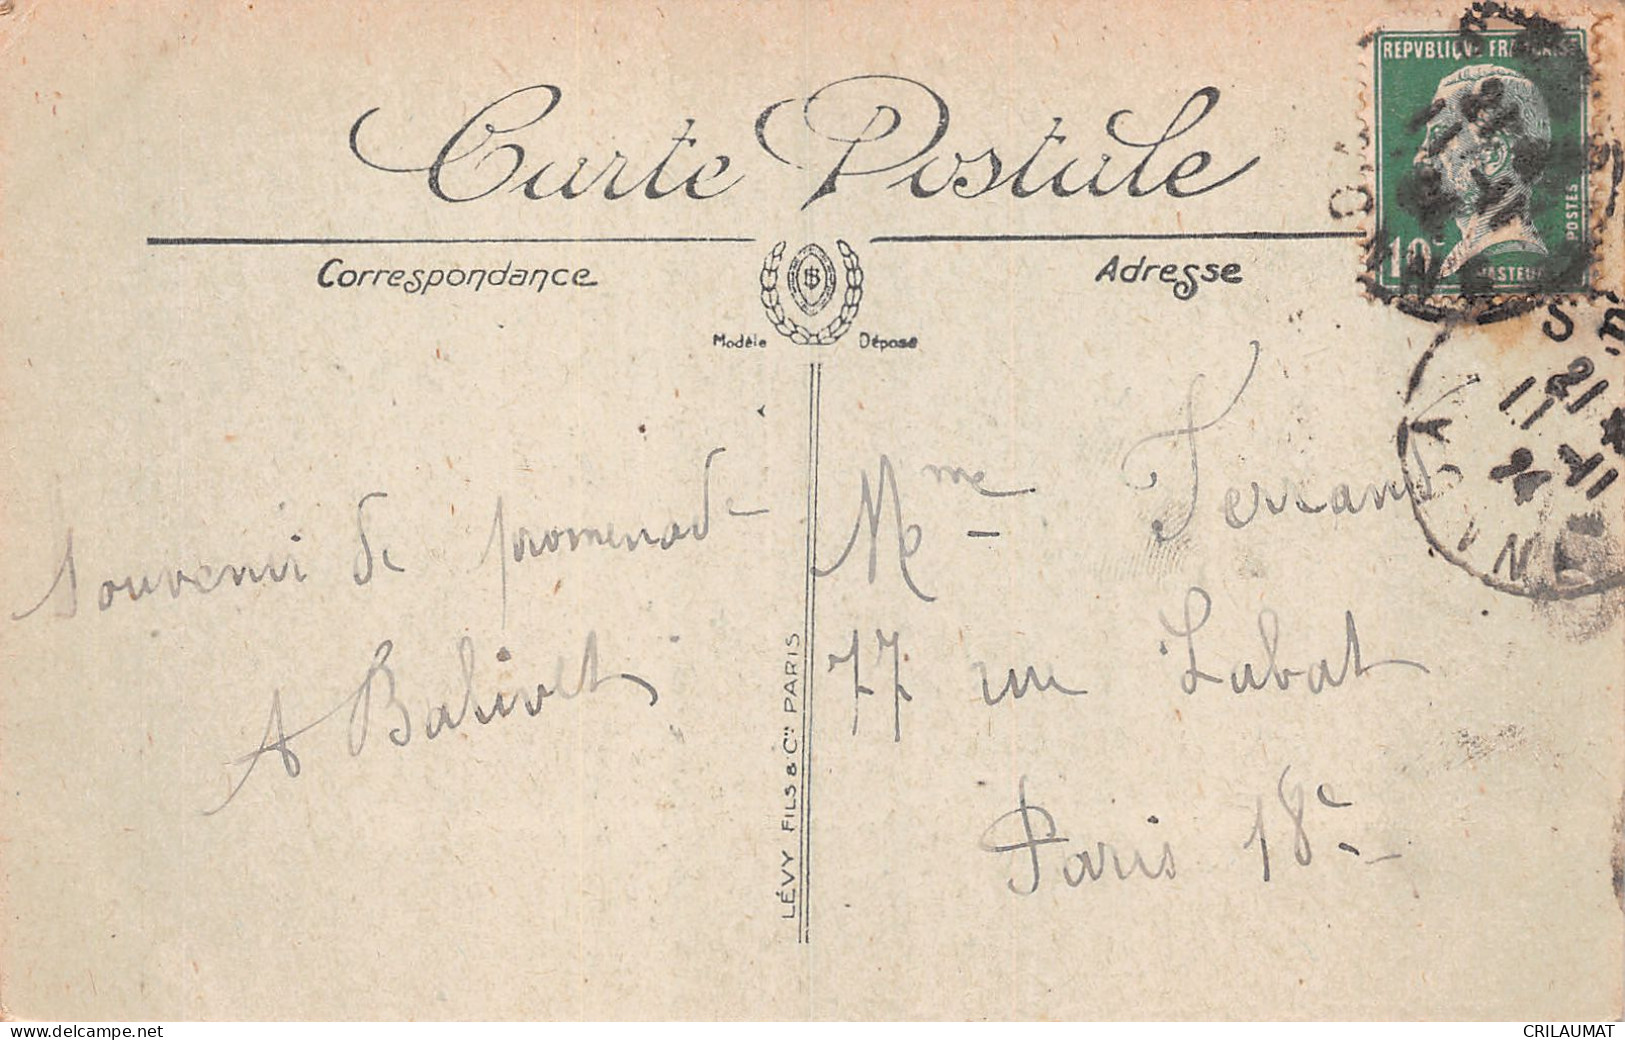 Carte Postale
REPVBLIQVE FRANÇAISE
POSTES
10c
PASTEUR
Correspondance
Adresse
Modèle Déposé
21
11
Souvenir de promenade
A Balivet
Mme Ferrand
77 rue Labat
Paris 18e
LÉVY FILS & Cie PARIS
www.delcampe.net
CRILAUMAT